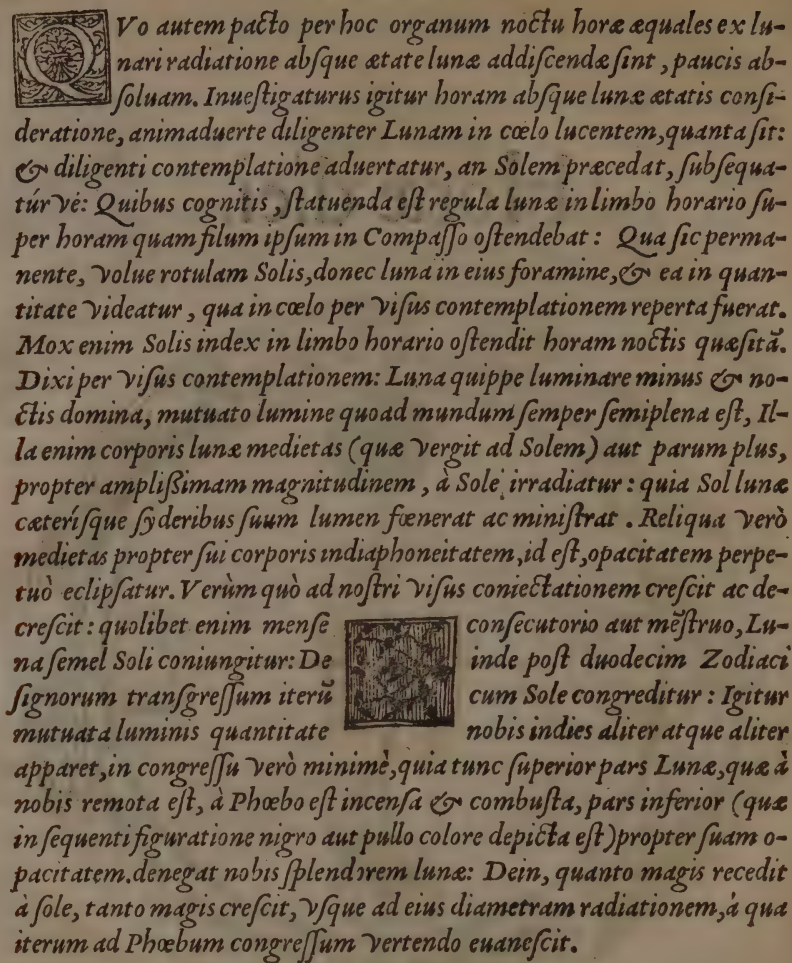 QVo autem pacto per hoc organum noctu horæ æquales ex lu-
nari radiatione absque ætate lunæ addiscendæ sint, paucis ab-
soluam. Inuestigaturus igitur horam absque lunæ ætatis consi-
deratione, animaduerte diligenter Lunam in cœlo lucentem, quanta sit:
& diligenti contemplatione aduertatur, an Solem præcedat, subsequa-
túr vé: Quibus cognitis, statuenda est regula lunæ in limbo horario su-
per horam quam filum ipsum in Compasso ostendebat: Qua sic perma-
nente, volue rotulam Solis, donec luna in eius foramine, & ea in quan-
titate videatur, qua in cœlo per visus contemplationem reperta fuerat.
Mox enim Solis index in limbo horario ostendit horam noctis quæsitã.
Dixi per visus contemplationem: Luna quippe luminare minus & no-
ctis domina, mutuato lumine quoad mundum semper semiplena est, Il-
la enim corporis lunæ medietas (quæ vergit ad Solem) aut parum plus,
propter amplißimam magnitudinem, à Sole irradiatur: quia Sol lunæ
cæterísque syderibus suum lumen fœnerat ac ministrat. Reliqua verò
medietas propter sui corporis indiaphoneitatem, id est, opacitatem perpe-
tuò eclipsatur. Verùm quò ad nostri visus coniectationem crescit ac de-
crescit: quolibet enim mense consecutorio aut mẽstruo, Lu-
na semel Soli coniungitur: Deinde post duodecim Zodiaci
signorum transgressum iterũ cum Sole congreditur: Igitur
mutuata luminis quantitate nobis indies aliter atque aliter
apparet, in congressu verò minimè, quia tunc superior pars Lunæ, quæ à
nobis remota est, à Phœbo est incensa & combusta, pars inferior (quæ
in sequenti figuratione nigro aut pullo colore depicta est) propter suam o-
pacitatem. denegat nobis splendorem lunæ: Dein, quanto magis recedit
à sole, tanto magis crescit, vsque ad eius diametram radiationem, à qua
iterum ad Phœbum congressum vertendo euanescit.